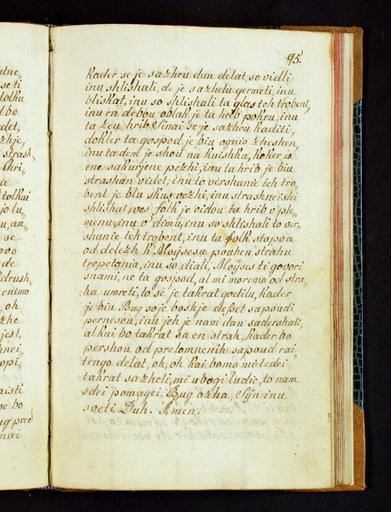 95.
kader se je sazheu dan delat, so vidli
inu shlishali, de je sazhelu germeti, inu
bliskat, inu so shlishali ta glas teh trobent,
inu en debou oblak je ta hrib pokriu, inu
ta zeu hrib Sinai se je sazheu kaditi,
dokler ta gospod je biu ognio
ta dem je shou na kuishku, koker is
ene sakurjene pezhi, inu ta hrib je biu
strashan videt, inu to vershanie teh tro
bent je blu skus inu strashneishi
shlishat, ves folk je vidou ta hrib v' fle
menu, inu v' dimu, inu so shlishali to ver,
shanie teh trobent, inu ta folk stapou
od delezh k' Moisesu pouhen strahu
trepetania, inu so diali, Moises ti govori
snami, ne ta gospud, al mi moremo od stra,
ha umreti, to se je takrat godilu, kader
je biu Bug soje boshje deset sapoudi
pernesou, inu jeh je nam dau sadershati,
al kai bo takrat sa en strah, kader bo
pershou od prelomnenih sapoud rai
tengo delat, oh, oh kai bomo mi tedei
takrat sazheli, mi ubogi ludie, to nam
sdei pomagei. Bug ozha, Syn inu
sveti Duh. Amen.